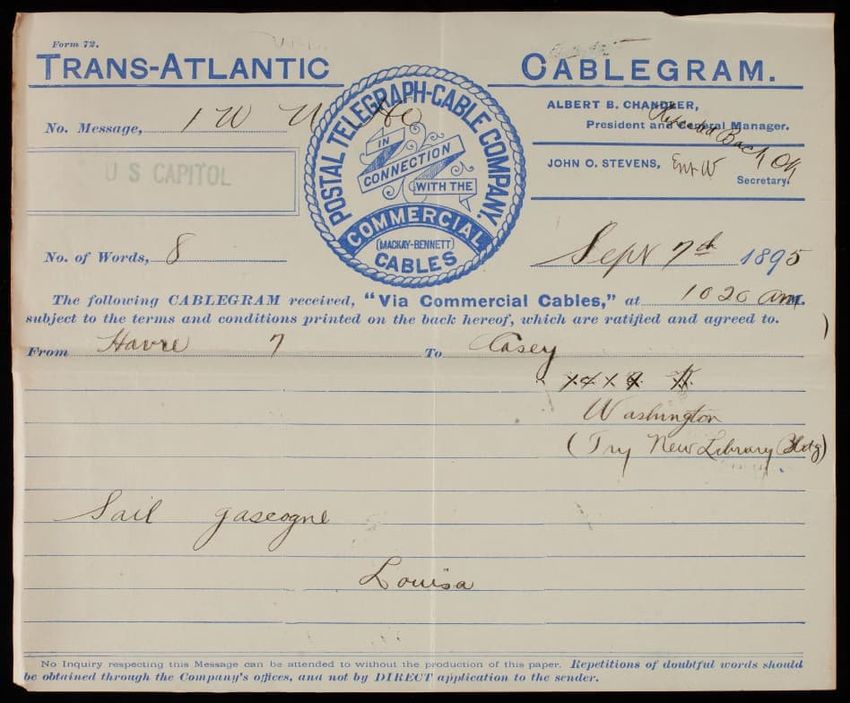 Form 72.
TRANS-ATLANTIC CABLEGRAM.
POSTAL TELEGRAPH-CABLE COMPANY.
IN
CONNECTION
WITH THE
COMMERCIAL
(MACKAY-BENNETT)
CABLES
ALBERT B. CHANDLER,
President and General Manager.
JOHN O. STEVENS,
Secretary.
Back OK
No. Message, 1 W
U S CAPITOL
No. of Words, 8
Sept 7th 1895
The following CABLEGRAM received, "Via Commercial Cables," at 10 20 am
subject to the terms and conditions printed on the back hereof, which are ratified and agreed to.
From Havre 7 To Casey
Washington
(Try New Library Bldg)
Sail gascogne
Louisa
No Inquiry respecting this Message can be attended to without the production of this paper. Repetitions of doubtful words should
be obtained through the Company's offices, and not by DIRECT application to the sender.